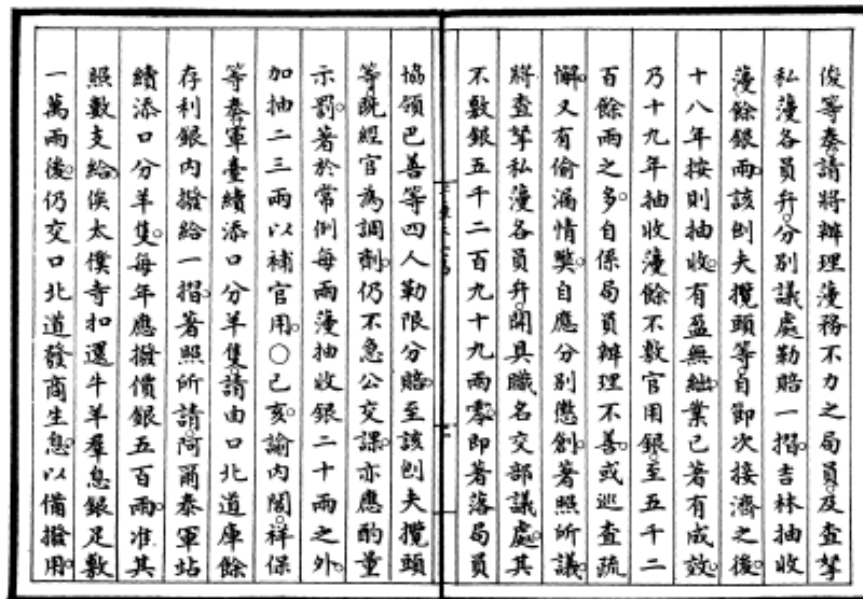 俊等奏請將辦理薓務不力之局員及查拏
私薓各員弁分別議處勒賠一摺吉林抽收
薓餘銀兩該刨夫攬頭等自節次接濟之後
十八年按則抽收有盈無絀業已著有成效
乃十九年抽收薓餘不敷官用銀至五千二
百餘兩之多自係局員辦理不善或巡查疏
懈又有偷漏情獘自應分別懲創著照所議
將查拏私薓各員弁開具職名交部議處其
不敷銀五千二百九十九兩零即著落局員
協領巴善等四人勒限分賠至該刨夫攬頭
等既經官為調劑仍不急公交課亦應酌量
示罰著於常例每兩薓抽收銀二十兩之外
加抽二三兩以補官用○己亥諭內閣祥保
等奏軍臺續添口分羊隻請由口北道庫餘
存利銀內撥給一摺著照所請阿爾泰軍站
續添口分羊隻每年應撥價銀五百兩准其
照數支給俟太僕寺扣還牛羊羣息銀足敷
一萬兩後仍交口北道發商生息以備撥用